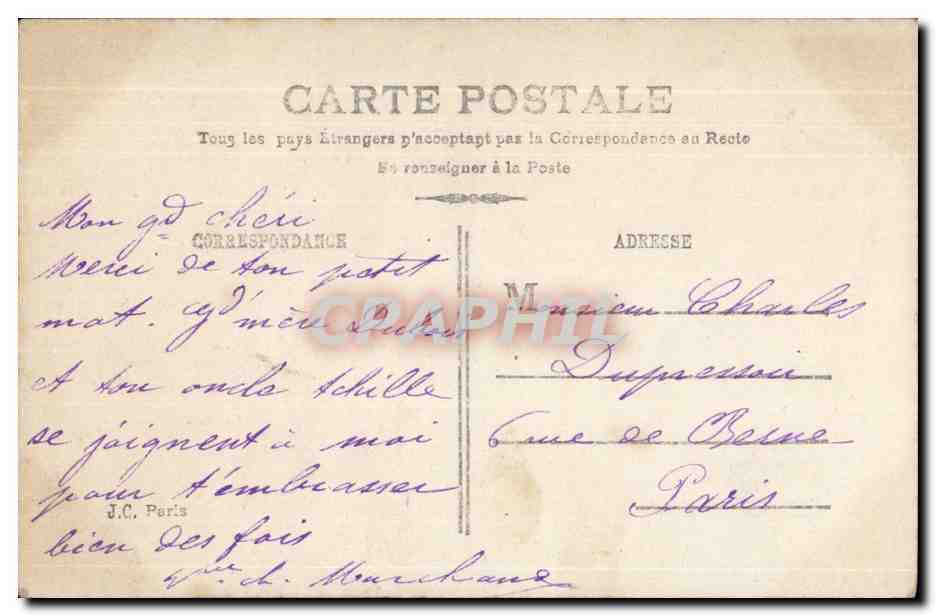 CARTE POSTALE
Tous les pays Étrangers n'acceptant pas la Correspondance au Recto
Se renseigner à la Poste
CORRESPONDANCE
Mon gd chéri
Merci de ton petit
mot. gd' mère Dubois
et ton oncle Achille
se joignent à moi
pour t'embrasser
bien des fois
Vve ch. Marchand
J.C. Paris
ADRESSE
Monsieur Charles
6 rue de Berne
Paris
CPAPHIL